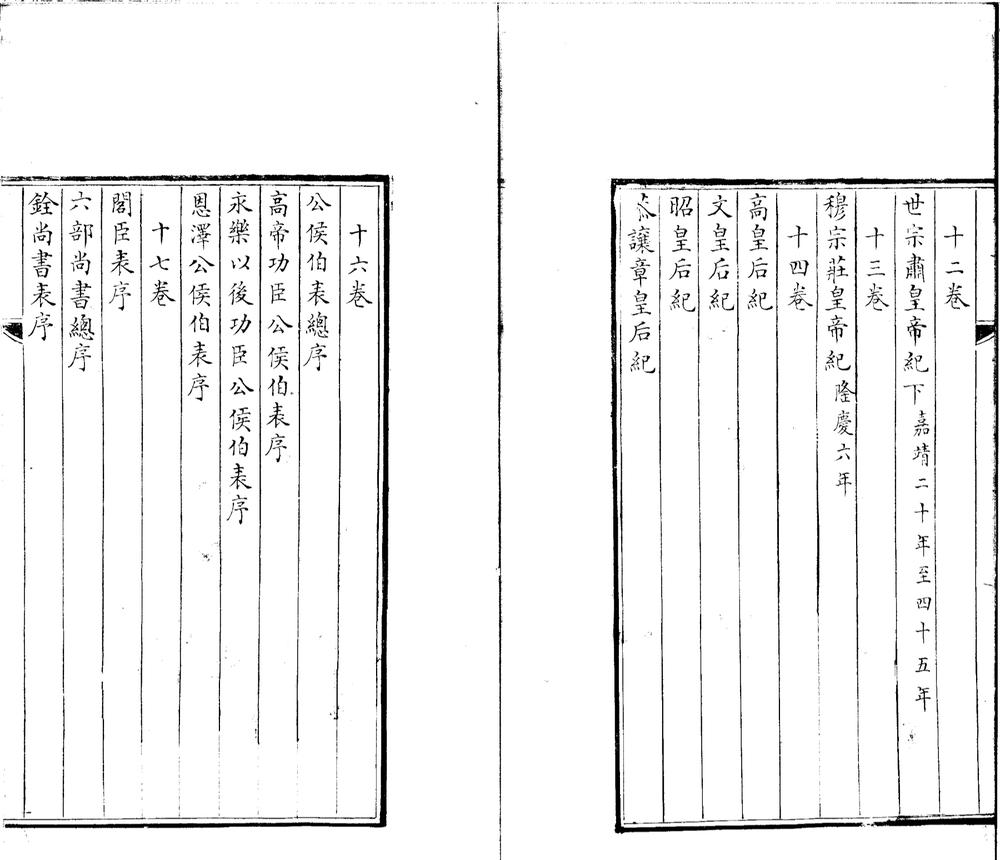 十二卷
世宗肅皇帝紀下嘉靖二十年至四十五年
十三卷
穆宗莊皇帝紀隆慶六年
十四卷
高皇后紀
文皇后紀
昭皇后紀
恭讓章皇后紀
十六卷
公侯伯表總序
高帝功臣公侯伯表序
永樂以後功臣公侯伯表序
恩澤公侯伯表序
十七卷
閣臣表序
六部尚書總序
銓尚書表序